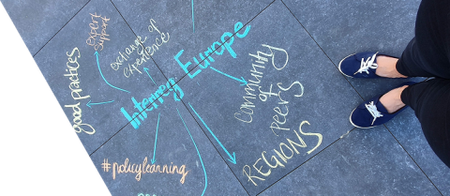 Expert
Support
Exchange of
Experience
good practices
Interreg Europe
Community
of
peers
REGIONS
#policylearning